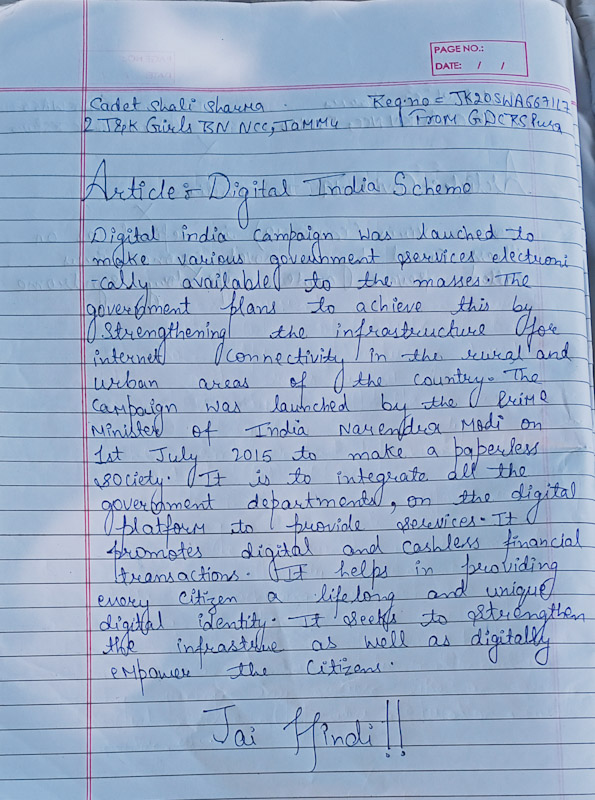 PAGE NO.:
DATE: / /
Cadet Shali Sharma . Reg.no = JK20SWA667117
2 J&K Girls BN NCC, JaMMU From GDC RS Pura
Article:- Digital India Scheme
Digital india campaign was lauched to
make various government services electroni
-cally available to the masses. The
government plans to achieve this by
strengthening the infrastructure for
internet connectivity in the rural and
urban areas of the country. The
campaign was launched by the Prime
Minister of India Narendra Modi on
1st July 2015 to make a paperless
society. It is to integrate all the
government departments, on the digital
platform to provide services. It
promotes digital and cashless financial
transactions. It helps in providing
every citizen a lifelong and unique
digital identity. It seeks to strengthen
the infrastrue as well as digitally
empower the citizens.
Jai Hindi!!